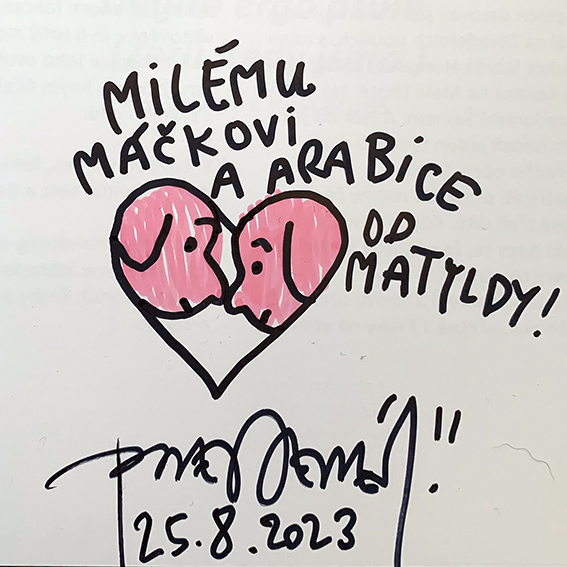 MILÉMU
MÁČKOVI
A ARABICE
OD
MATYLDY!
25.8.2023